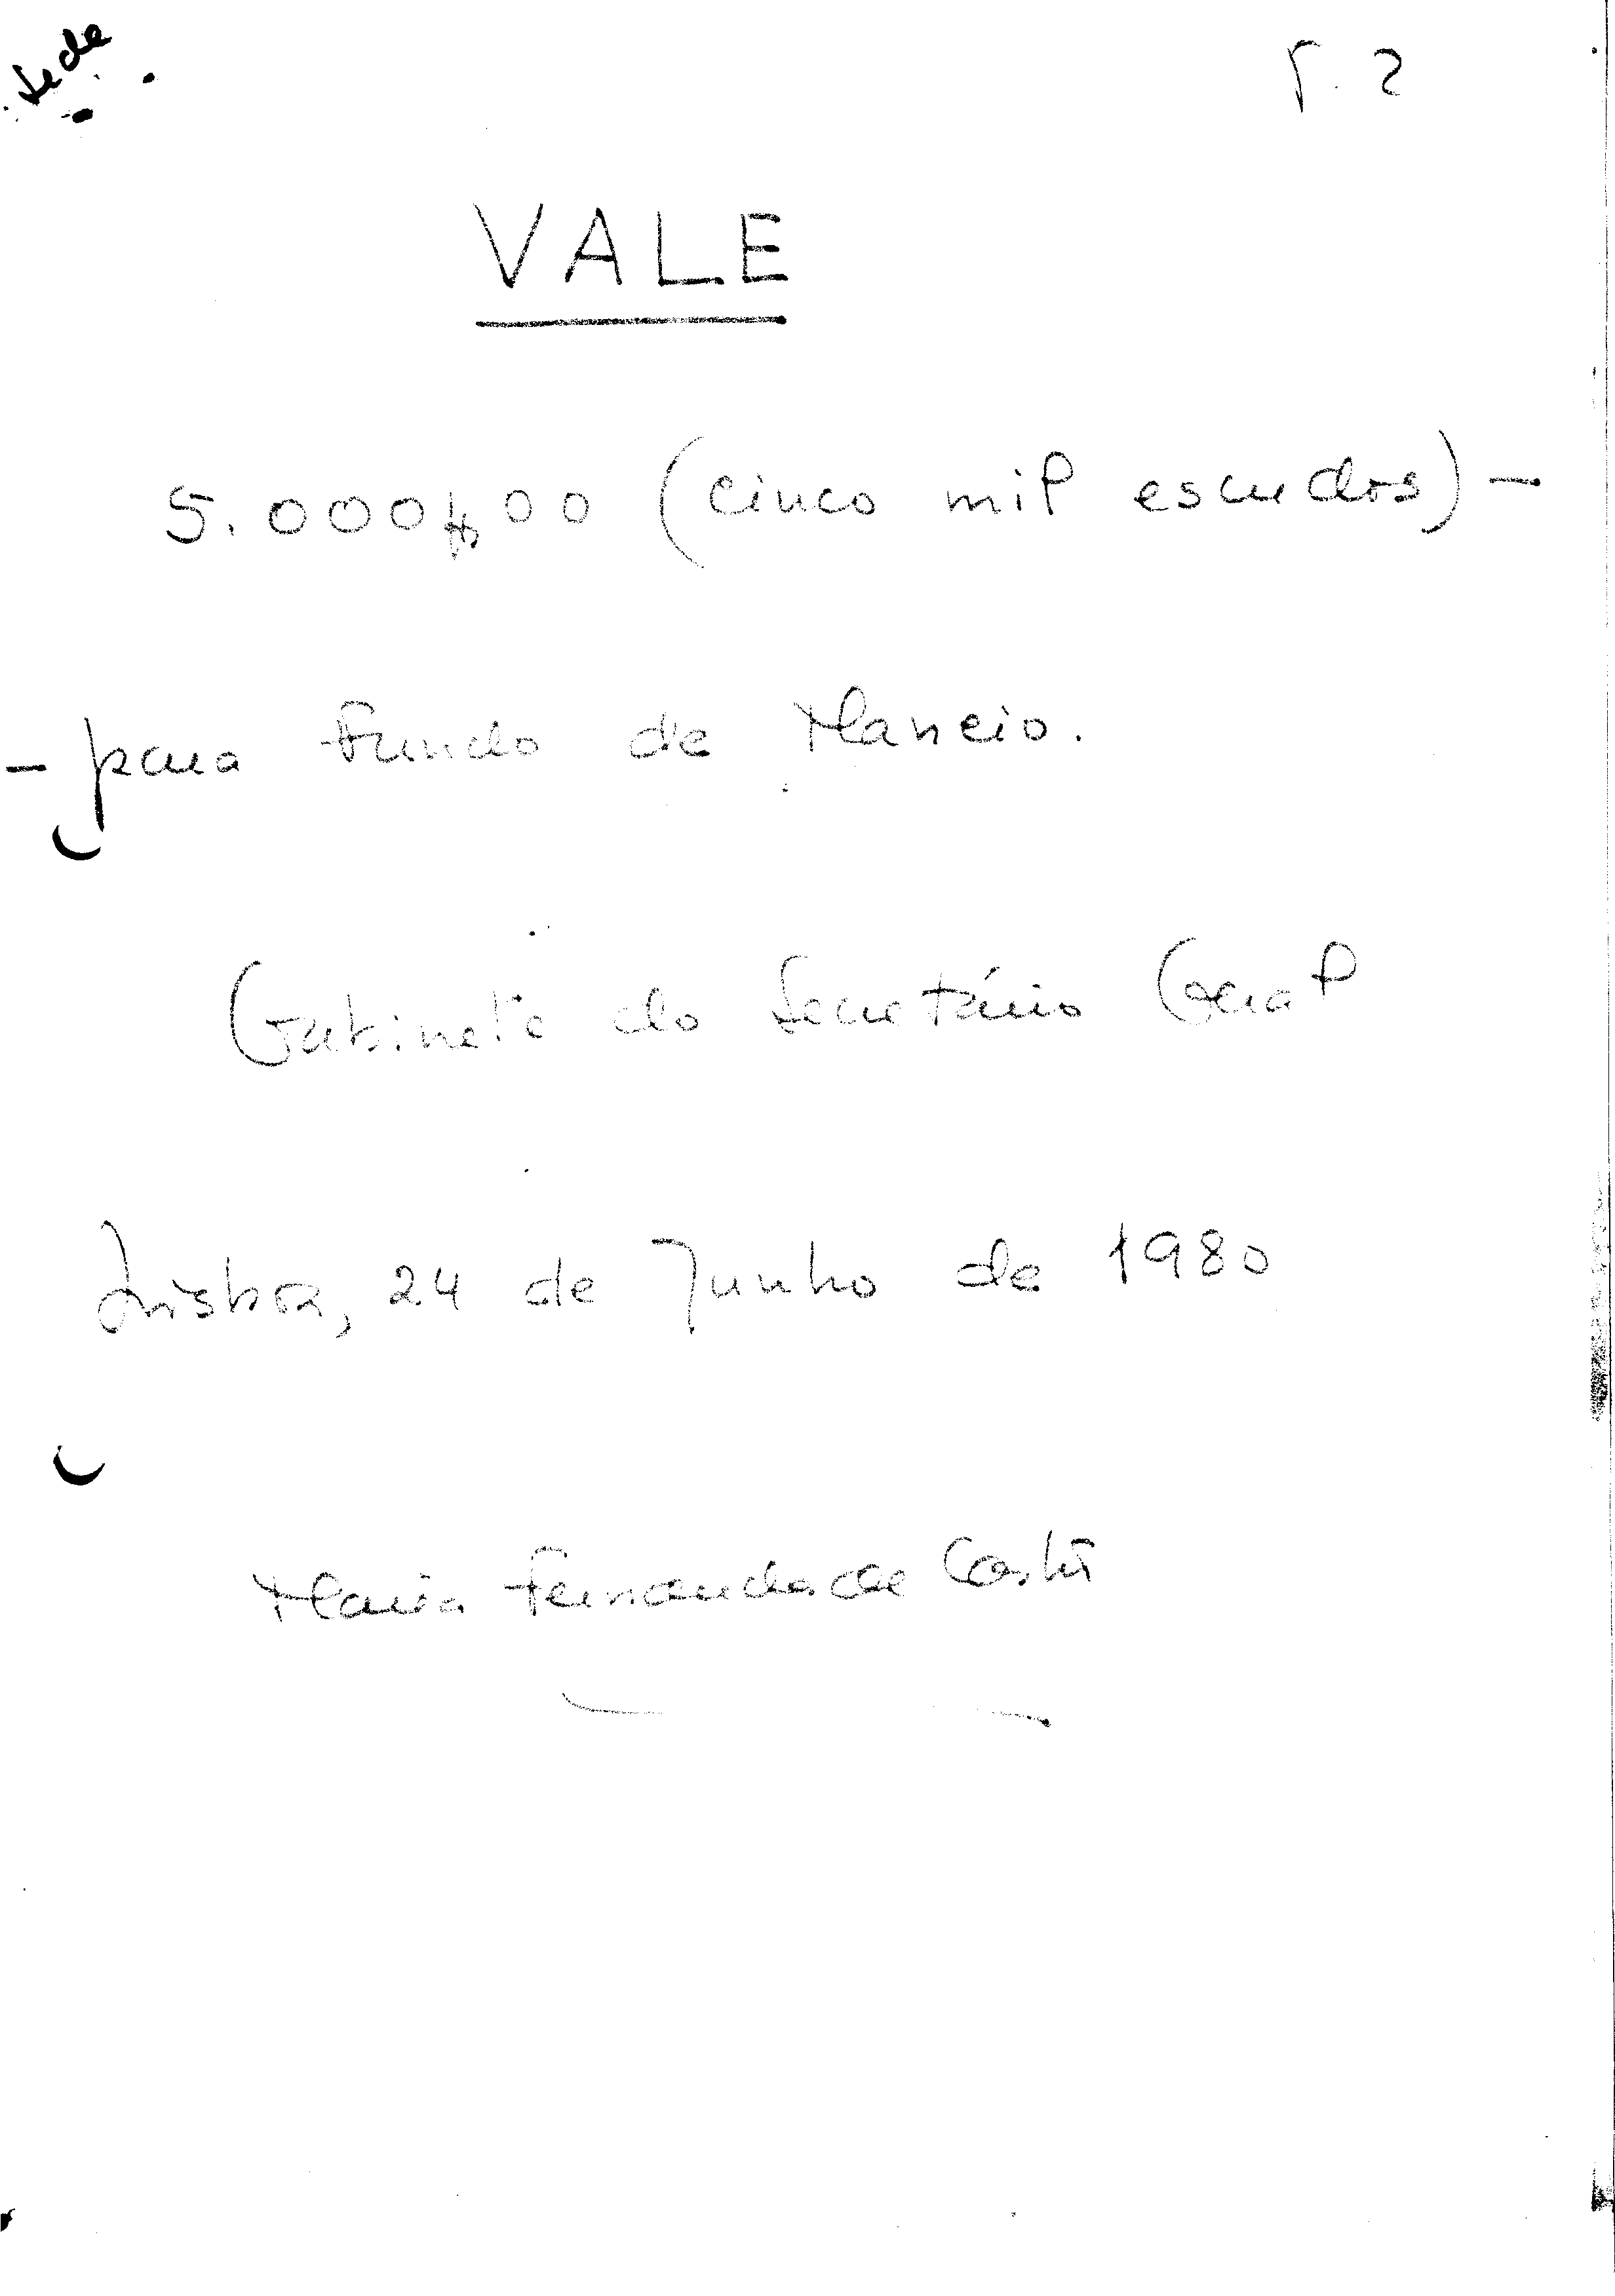 Sede
P. 2
VALE
5.000$00 (cinco mil escudos) —
— para Fundo de Maneio.
Gabinete do Secretário Geral
Lisboa, 24 de Junho de 1980
Maria Fernanda de Castro